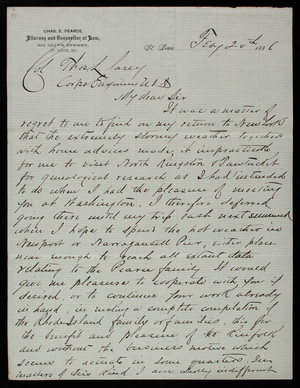 CHAS. E. PEARCE,
Attorney and Counsellor at Law,
OLIVE STREET,
ST. LOUIS, MO.
St. Louis Feby 20th 1886
Col Thos L Casey
Corps Engineers U.S.A
My dear Sir
It was a matter of
regret to me to find on my return to New York
that the extremely stormy weather together
with home advices made it impracticable
for me to visit North Kingston & Pawtucket
for geneological research as I had intended
to do when I had the pleasure of meeting
you at Washington. I therefore deferred
going there until my trip east next summer
when I hope to spend the hot weather in
Newport or Narragansett Pier, either place
near enough to reach all extant data
relating to the Pearce family. It would
give me pleasure to cooperate with you if
desired, or to continue your work already
in hand, in making a complete compilation of
the Rhode Island family organizations, this for
the benefit and pleasure of the kinfolk
and without the business motive which
seems to activate in some quarters. In
matters of this kind I am wholly indifferent